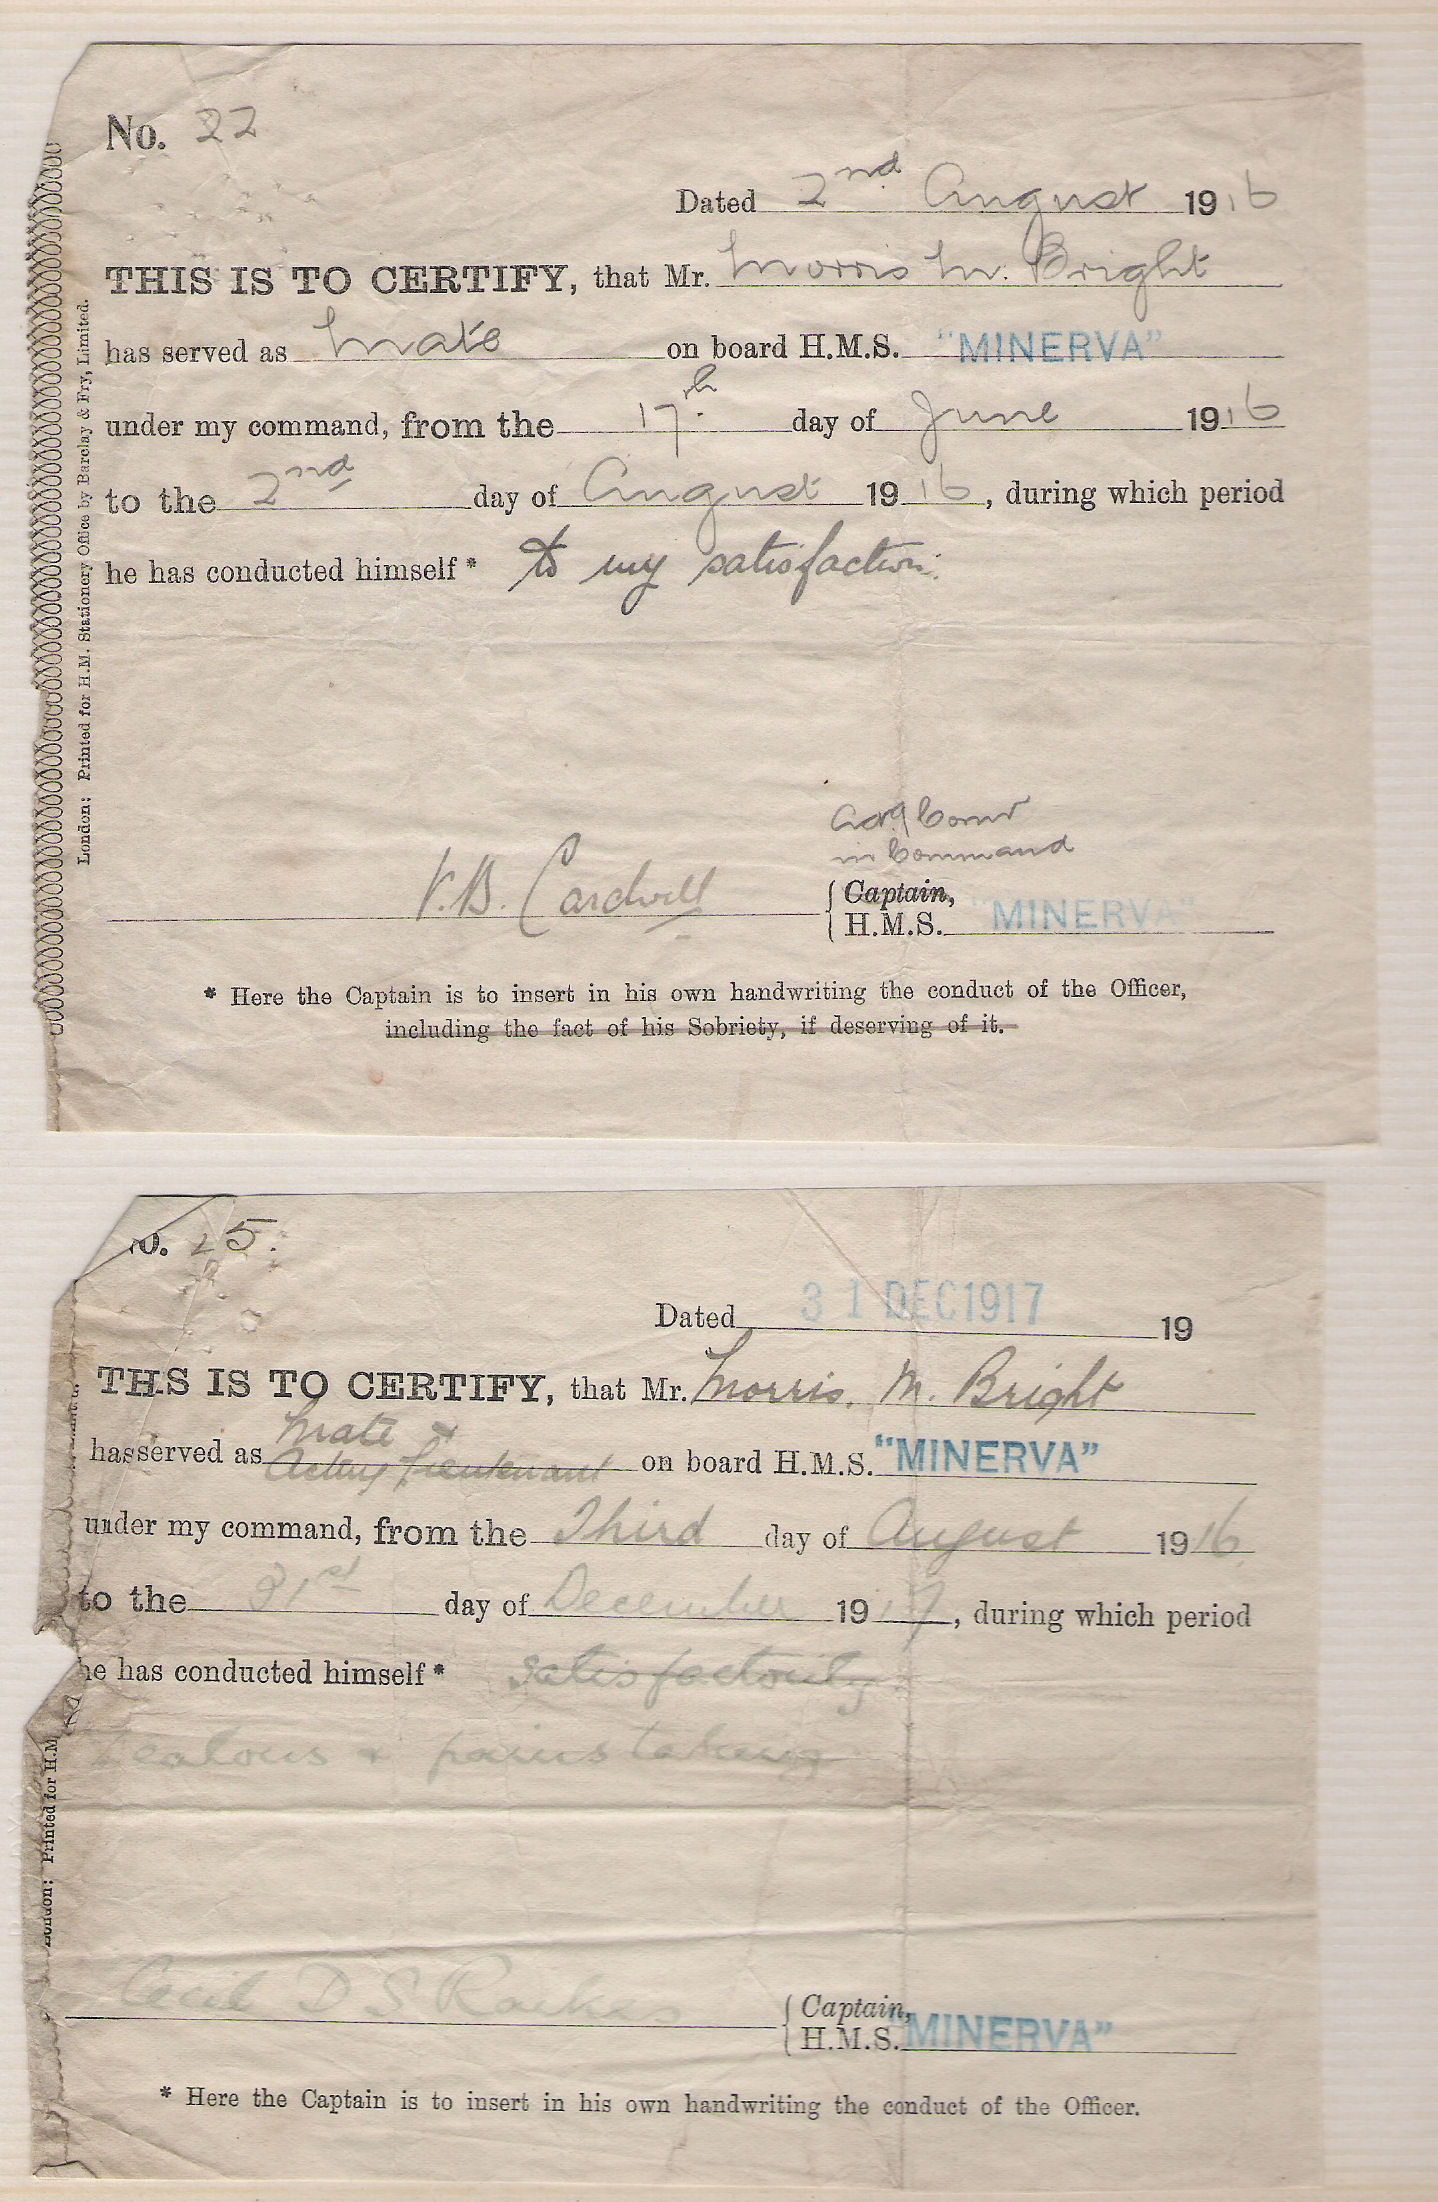 No. 22
Dated 2nd August 1916
THIS IS TO CERTIFY, that Mr. Morris M. Bright
has served as Mate on board H.M.S. "MINERVA"
under my command, from the 17th day of June 1916
to the 2nd day of August 1916, during which period
he has conducted himself* to my satisfaction.
in Command
V.B. Cardwell
Captain,
H.M.S. "MINERVA"
* Here the Captain is to insert in his own handwriting the conduct of the Officer,
including the fact of his Sobriety, if deserving of it.
London: Printed for H.M. Stationery Office by Barclay & Fry, Limited.
o. 25.
Dated 31 DEC 1917 19
THIS IS TO CERTIFY, that Mr. Morris. M. Bright
has served as Mate & Acting Lieutenant on board H.M.S. "MINERVA"
under my command, from the Third day of August 1916
to the 31st day of December 1917, during which period
he has conducted himself* satisfactorily.
Zealous & painstaking
Cecil D S Raikes
Captain,
H.M.S. "MINERVA"
* Here the Captain is to insert in his own handwriting the conduct of the Officer.
London: Printed for H.M